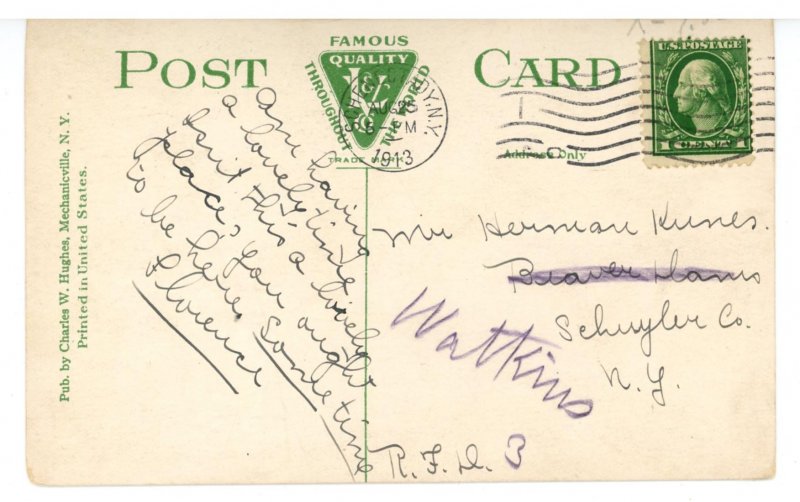 POST CARD
FAMOUS
QUALITY
THROUGHOUT THE WORLD
TRADE MARK
AUG 28
1913
N.Y.
U.S. POSTAGE
1 CENT 1
Address Only
Pub. by Charles W. Hughes, Mechanicville, N. Y.
Printed in United States.
Am having
a lovely time
Isn't this a lovely
place, you ought
to be here sometime
Florence
Mr Herman Kunes.
Beaver Dams
Watkins
Schuyler Co.
N.Y.
R.F.D. 3